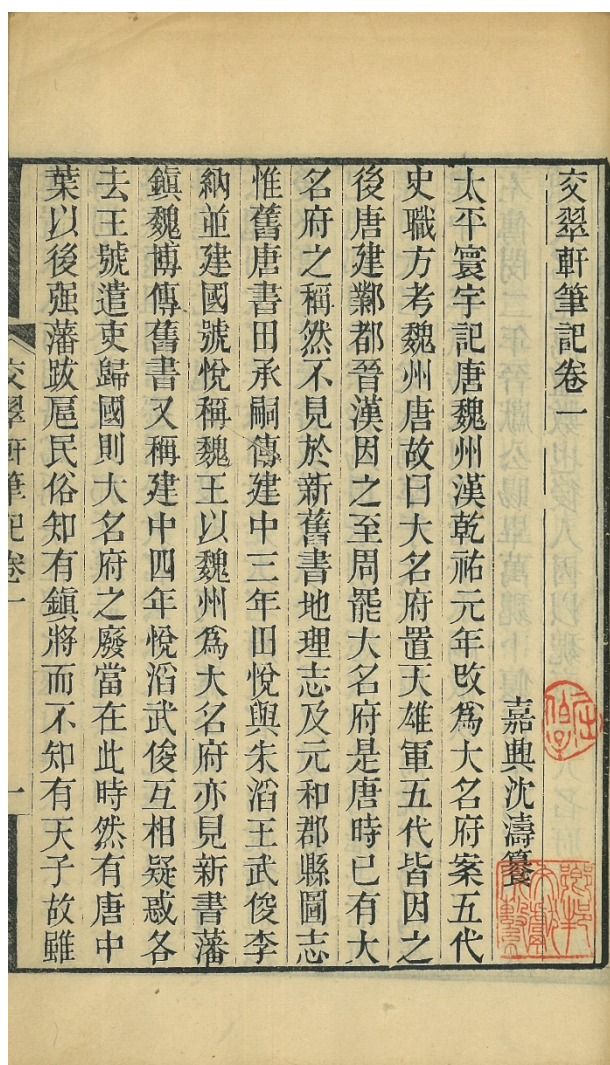 交翠軒筆記卷一
嘉興沈濤纂
太平寰宇記唐魏州漢乾祐元年改爲大名府案五代
史職方考魏州唐故曰大名府置天雄軍五代皆因之
後唐建鄴都晉漢因之至周罷大名府是唐時已有大
名府之稱然不見於新舊書地理志及元和郡縣圖志
惟舊唐書田承嗣傳建中三年田悅與朱滔王武俊李
納並建國號悅稱魏王以魏州爲大名府亦見新書藩
鎮魏博傳舊書又稱建中四年悅滔武俊互相疑惑各
去王號遣吏歸國則大名府之廢當在此時然有唐中
葉以後强藩跋扈民俗知有鎮將而不知有天子故雖
交翠軒筆記卷一
一